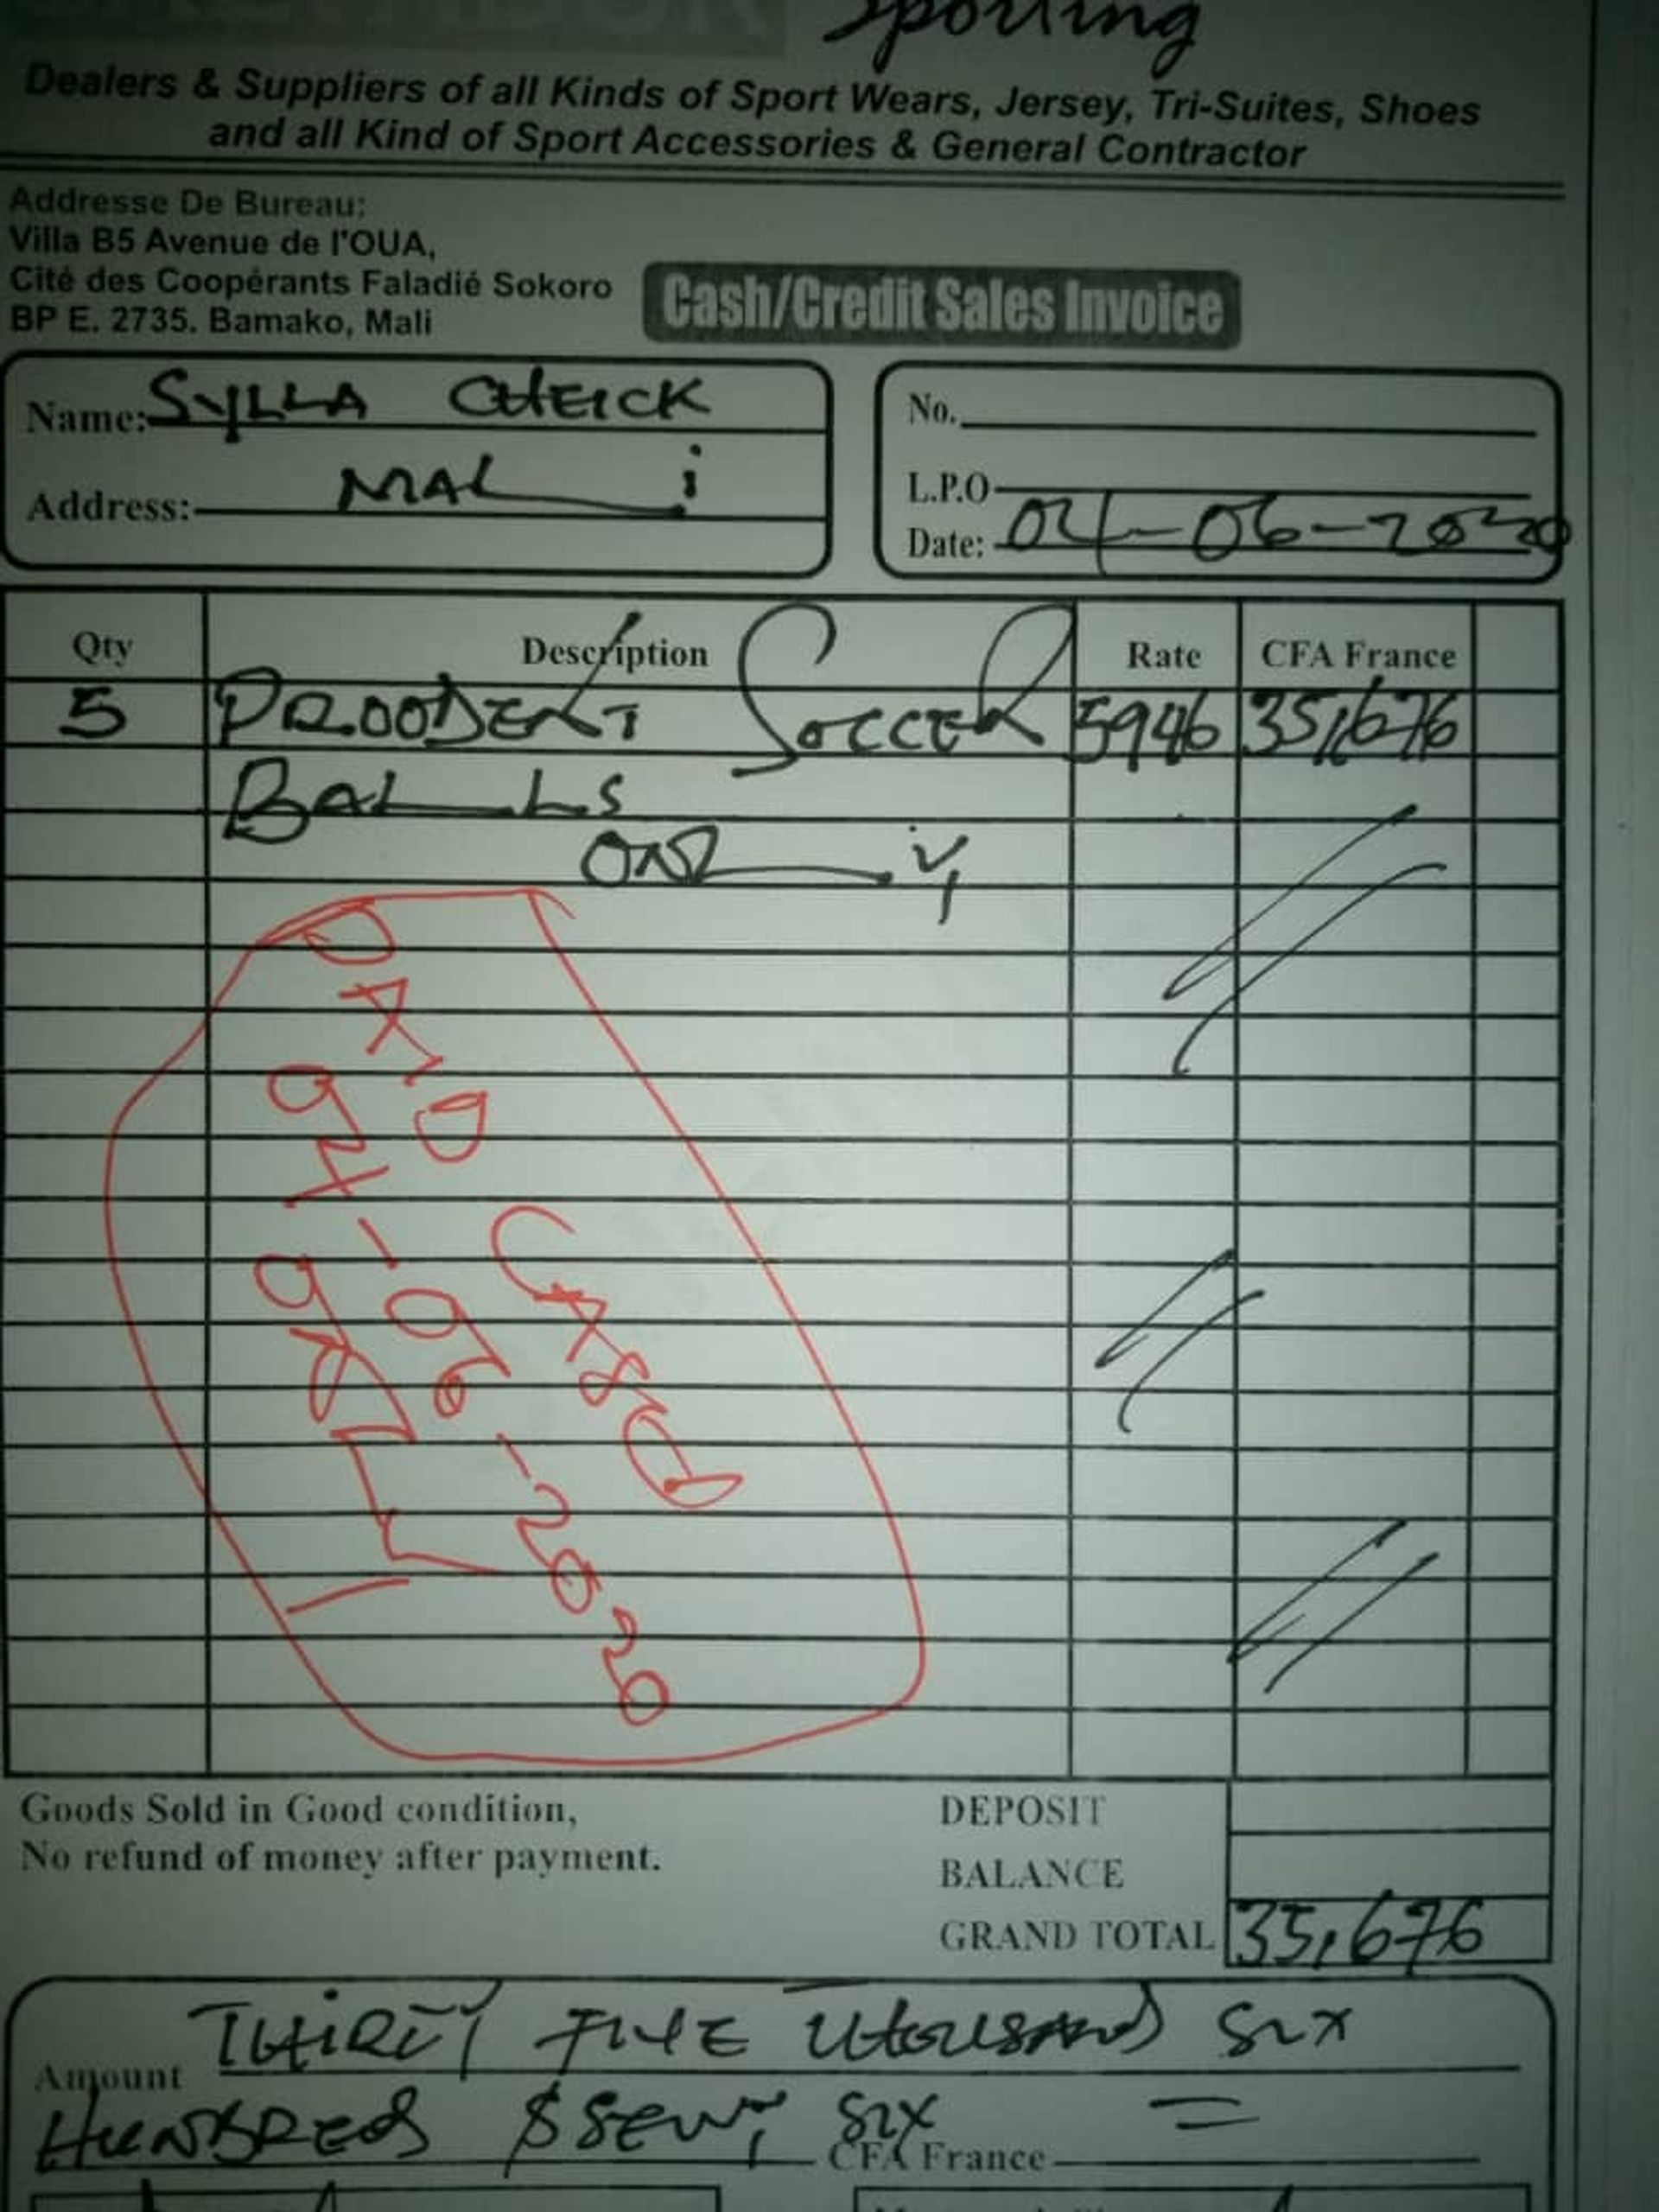 Sporting
Dealers & Suppliers of all Kinds of Sport Wears, Jersey, Tri-Suites, Shoes
and all Kind of Sport Accessories & General Contractor
Addresse De Bureau:
Villa B5 Avenue de l'OUA,
Cité des Coopérants Faladié Sokoro
BP E. 2735. Bamako, Mali
Cash/Credit Sales Invoice
Name: SYLLA CHEICK
Address: MALi
No.
L.P.O
Date: 04-06-2020
Qty Description Rate CFA France
5 PROODENT SOCCER 5946 35,676
BALLS
ONLY
PAID CASH
04-06-2020
Goods Sold in Good condition,
No refund of money after payment.
DEPOSIT
BALANCE
GRAND TOTAL 35,676
Amount THIRTY FIVE THOUSAND SIX
HUNDRED $ SEVNTY SIX =
CFA France